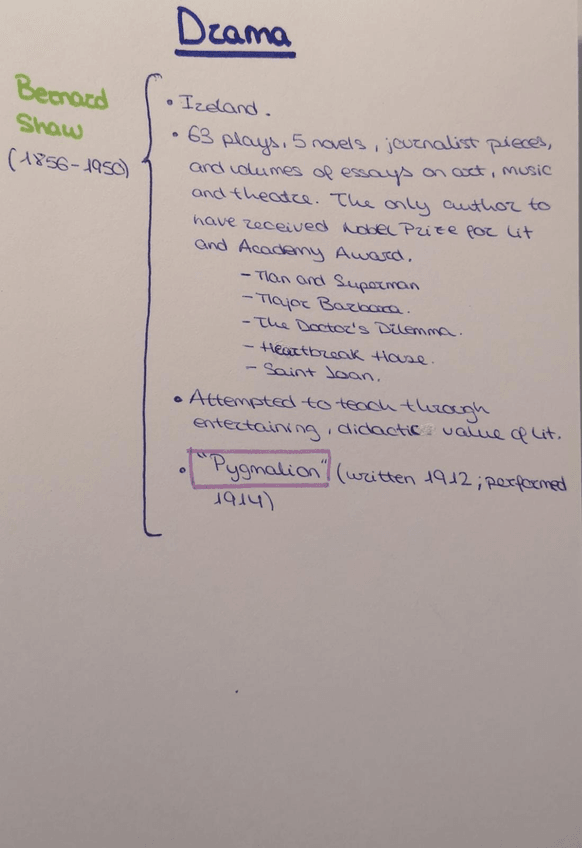 Drama
Bernard
Shaw
(1856-1950)
• Ireland.
• 63 plays, 5 novels, journalist pieces,
and volumes of essays on art, music
and theatre. The only author to
have received Nobel Prize for Lit
and Academy Award.
- Man and Superman
- Major Barbara.
- The Doctor's Dilemma.
- Heartbreak House.
- Saint Joan.
• Attempted to teach through
entertaining, didactic value of lit.
• "Pygmalion" (written 1912; performed
1914)